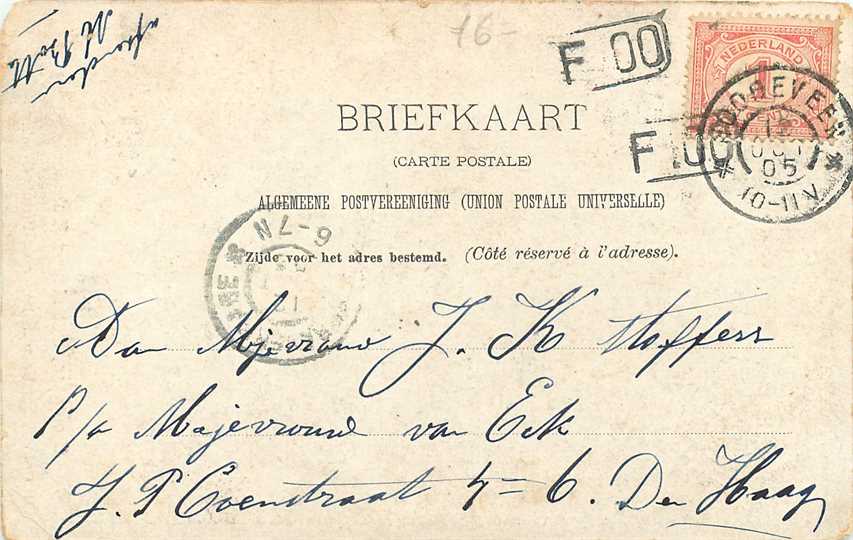 afzendster
76-
F 00
NEDERLAND
1
CENT
F 00
HOOGEVEEN
12
OCT
05
10-11V
BRIEFKAART
(CARTE POSTALE)
ALGEMEENE POSTVEREENIGING (UNION POSTALE UNIVERSELLE)
Zijde voor het adres bestemd. (Côté réservé à l'adresse).
6-7N
Aan Mejevrouw J. K Stoffers
p/a Mejevrouw van Eck
J. P Coenstraat 4=6. Den Haag